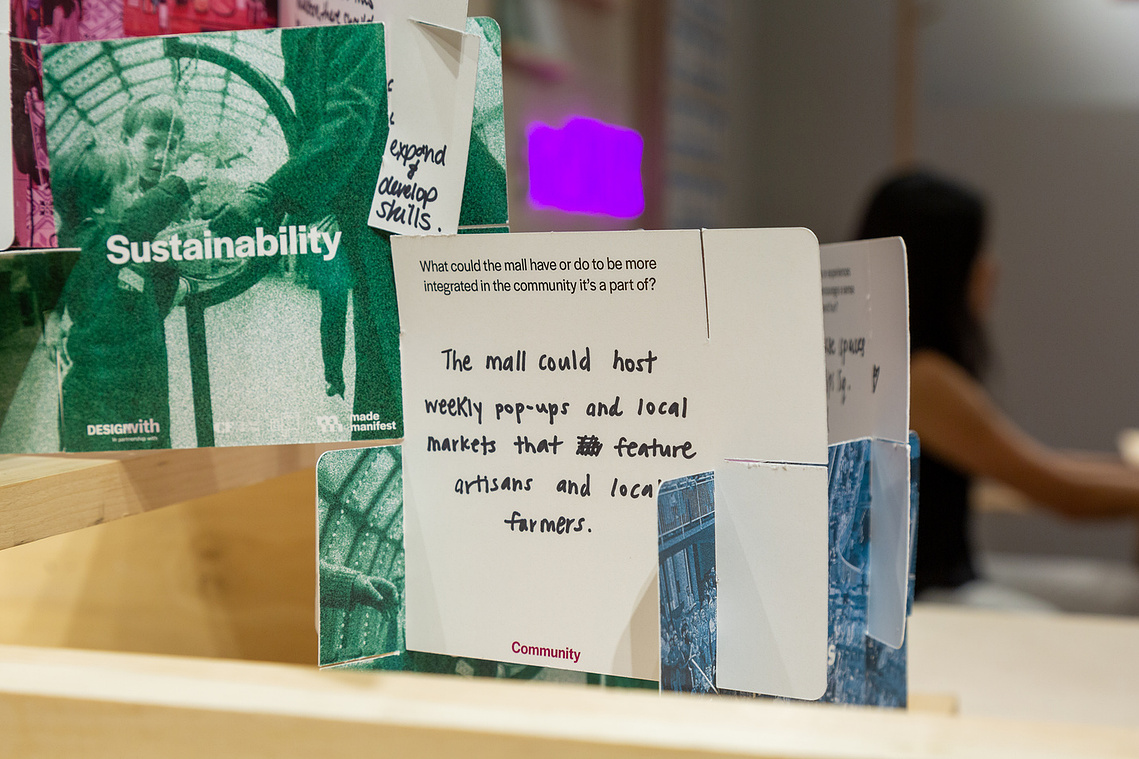 expand
&
develop
skills.
Sustainability
DESIGNwith
in partnership with
made
manifest
What could the mall have or do to be more
integrated in the community it's a part of?
The mall could host
weekly pop-ups and local
markets that feature
artisans and local
farmers.
Community
spaces